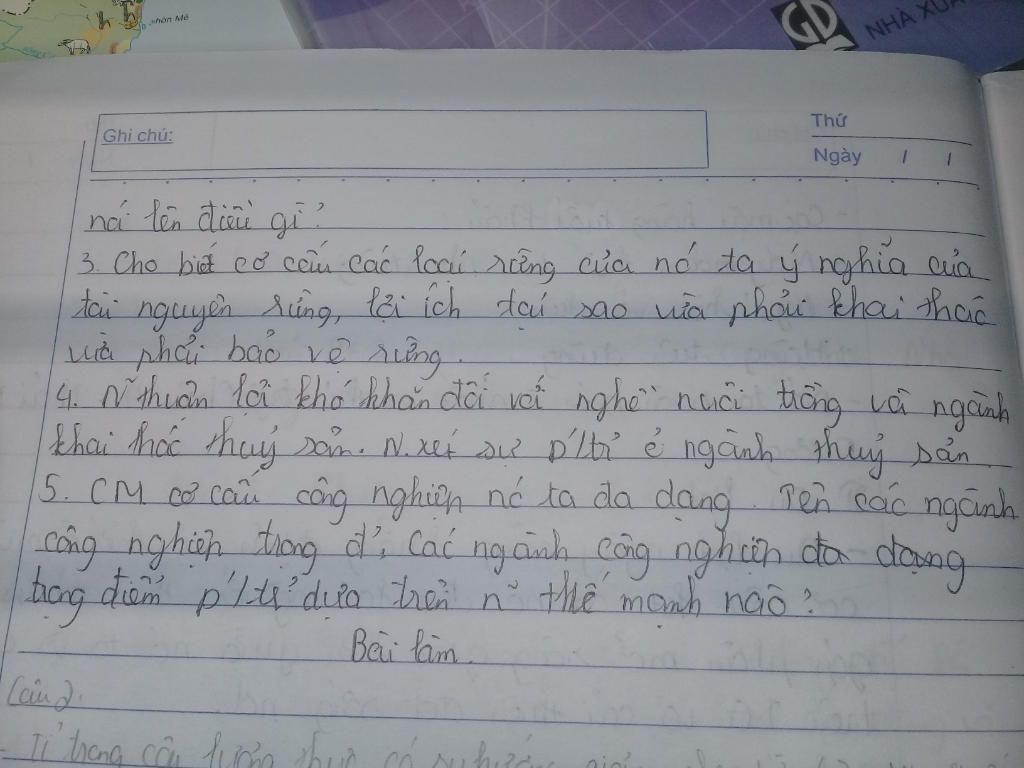 hòn Mê
GD
NHÀ XUẤ
Ghi chú:
Thứ
Ngày / /
nói lên điều gì?
3. Cho biết cơ cấu các loại rừng của nó ta ý nghĩa của
tài nguyên rừng, lợi ích tại sao vừa phải khai thác
vừa phải bảo vệ rừng.
4. N~ thuận lợi khó khăn đối với nghề nuôi trồng và ngành
khai thác thuỷ sản. N.xét sự p/tr ngành thuỷ sản
5. CM cơ cấu công nghiệp nc ta đa dạng. Tên các ngành
công nghiệp trọng đ', Các ngành công nghiệp đa dạng
trọng điểm p/tr dựa trên n~ thế mạnh nào?
Bài làm.
Câu 2:
- Tỉ trọng cây lương thực có xu hướng giảm